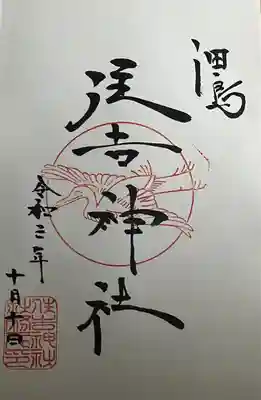 細島
住吉神社
令和二年
十月十三日